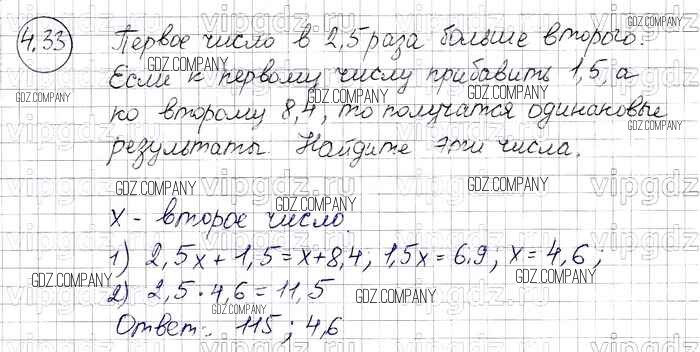 4.33 Первое число в 2,5 раза больше второго.
Если к первому числу прибавить 1,5, а
ко второму 8,4, то получатся одинаковые
результаты. Найдите эти числа.
x - второе число.
1) 2,5x + 1,5 = x + 8,4; 1,5x = 6.9; x = 4,6;
2) 2,5 · 4,6 = 11,5
Ответ: 115; 4,6
vipgdz.ru
GDZ.COMPANY